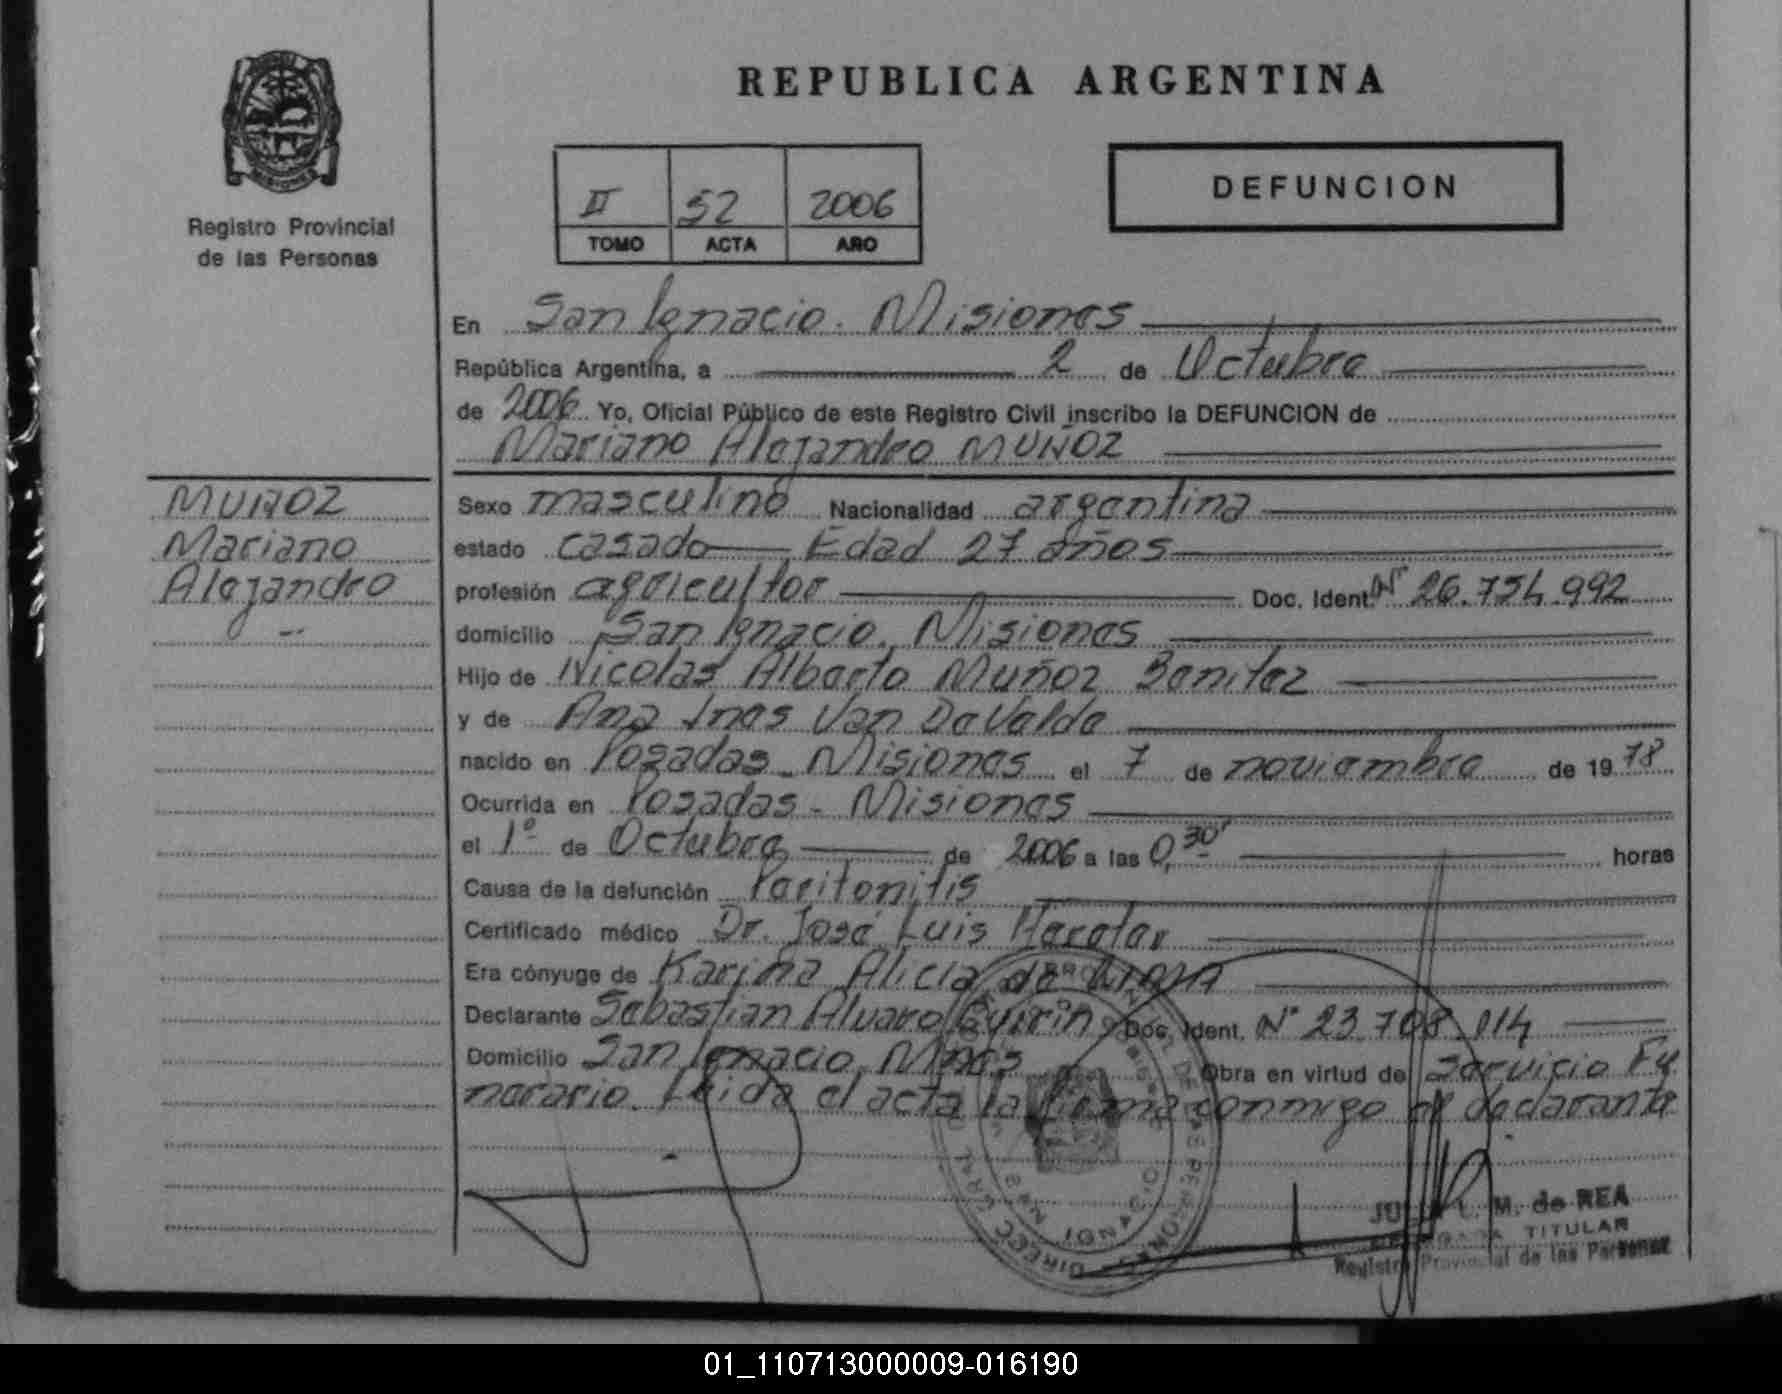 REPUBLICA ARGENTINA
MISIONES
Registro Provincial
de las Personas
II 52 2006
TOMO ACTA AÑO
DEFUNCION
En San Ignacio. Misiones
República Argentina, a 2 de Octubre
de 2006 Yo, Oficial Público de este Registro Civil inscribo la DEFUNCION de
Mariano Alejandro MUÑOZ
MUÑOZ
Mariano
Alejandro
Sexo masculino Nacionalidad argentina
estado casado Edad 27 años
profesión agricultor Doc. Ident. Nº 26.754.992
domicilio San Ignacio. Misiones
Hijo de Nicolás Alberto Muñoz Benitez
y de Ana Ines Van De Velde
nacido en Posadas - Misiones el 7 de noviembre de 1978
Ocurrida en Posadas - Misiones
el 1º de Octubre de 2006 a las 0,30 horas
Causa de la defunción Peritonitis
Certificado médico Dr. José Luis
Era cónyuge de Karina Alicia de Lima
Declarante Sebastian Alvaro Doc. Ident. Nº 23.708.114
Domicilio San Ignacio, Mnes Obra en virtud de Servicio Fu
nerario. Leida el acta la firma conmigo el declarante
M. de REA
TITULAR
Registro Provincial de las Personas
01_110713000009-016190